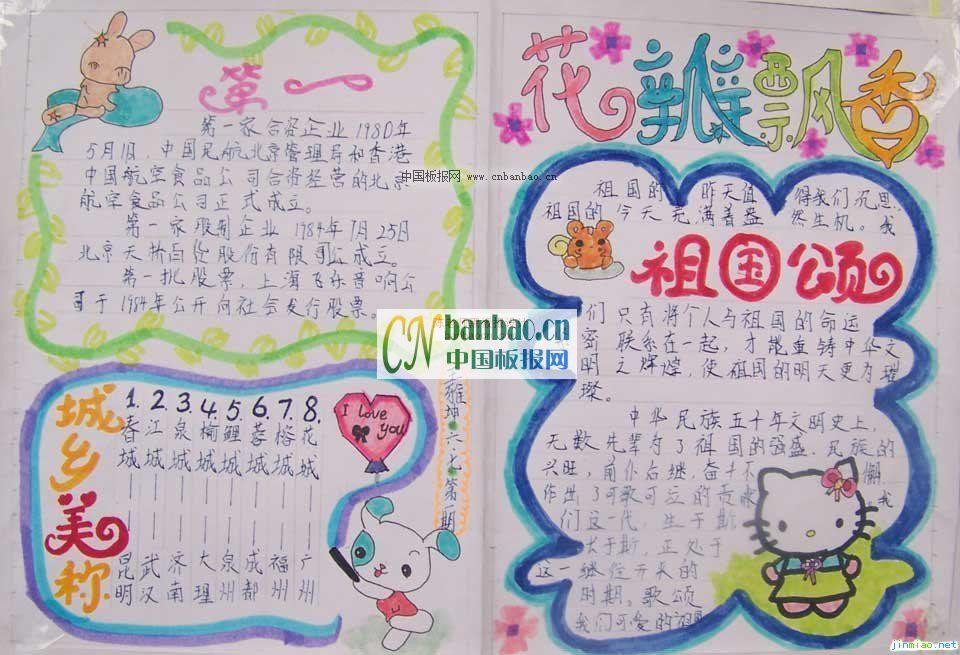 第一
第一家合资企业 1980年
5月1日,中国民航北京管理局和香港
中国航空食品公司合资经营的北京
航空食品公司正式成立。
第一家股制企业 1984年7月25日
北京天桥百货股份有限公司成立。
第一批股票,上海飞乐音响公
司于1984年公开向社会发行股票。
中国板报网 www.cnbanbao.cn
城乡美称
1. 春城——昆明
2. 江城——武汉
3. 泉城——济南
4. 榆城——大理
5. 鲤城——泉州
6. 蓉城——成都
7. 榕城——福州
8. 花城——广州
I love you
CNbanbao.cn
中国板报网
坤 六 第 期
花瓣飘香
祖国的 昨天值 得我们沉思
祖国的 今天充满着盎 然生机。我
祖国颂
们 只有将个人与祖国的命运
密 联系在一起,才能重铸中华文
明之辉煌,使祖国的明天更为璀
璨。
中华民族五千年文明史上,
无数先辈为了祖国的强盛、民族的
兴旺,前仆后继,奋斗不 懈
作出了可歌可泣的贡献 我
们这一代,生于斯
长于斯,正处于
这一继往开来的
时期。歌颂
我们可爱的祖国
jinmiao.net